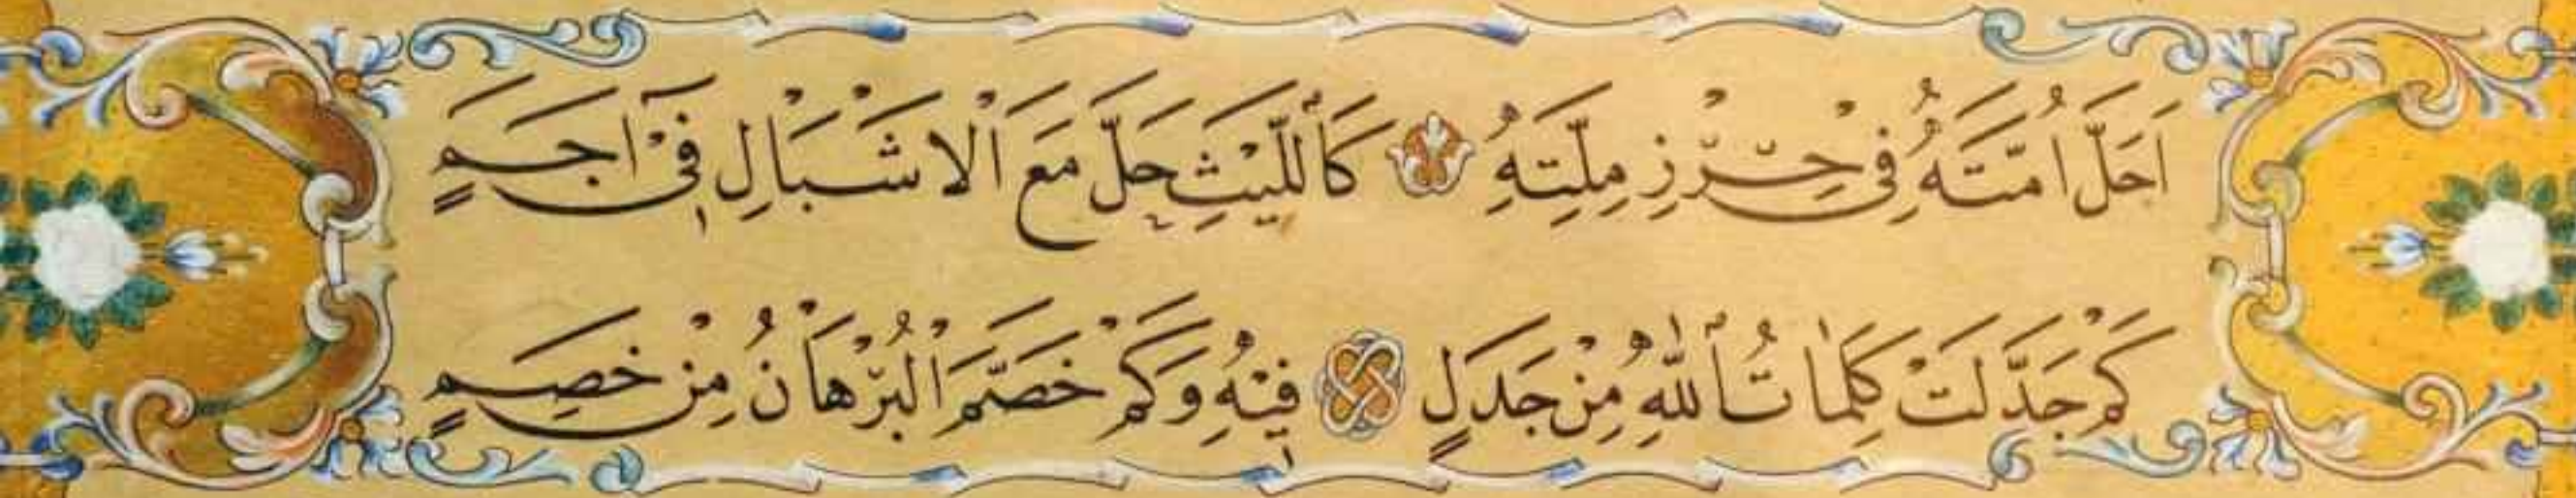 اَحَلَّ اُمَّتَهُ فِى حِرْزِ مِلَّتِهِ كَٱللَّيْثِ حَلَّ مَعَ الْاَشْبَالِ فِىٓ اَجَمٍ
كَمْ جَدَّلَتْ كَلِمَاتُ ٱللّٰهِ مِنْ جَدَلٍ فِيهِ وَكَمْ خَصَّمَ الْبُرْهَانُ مِنْ خَصِمٍ